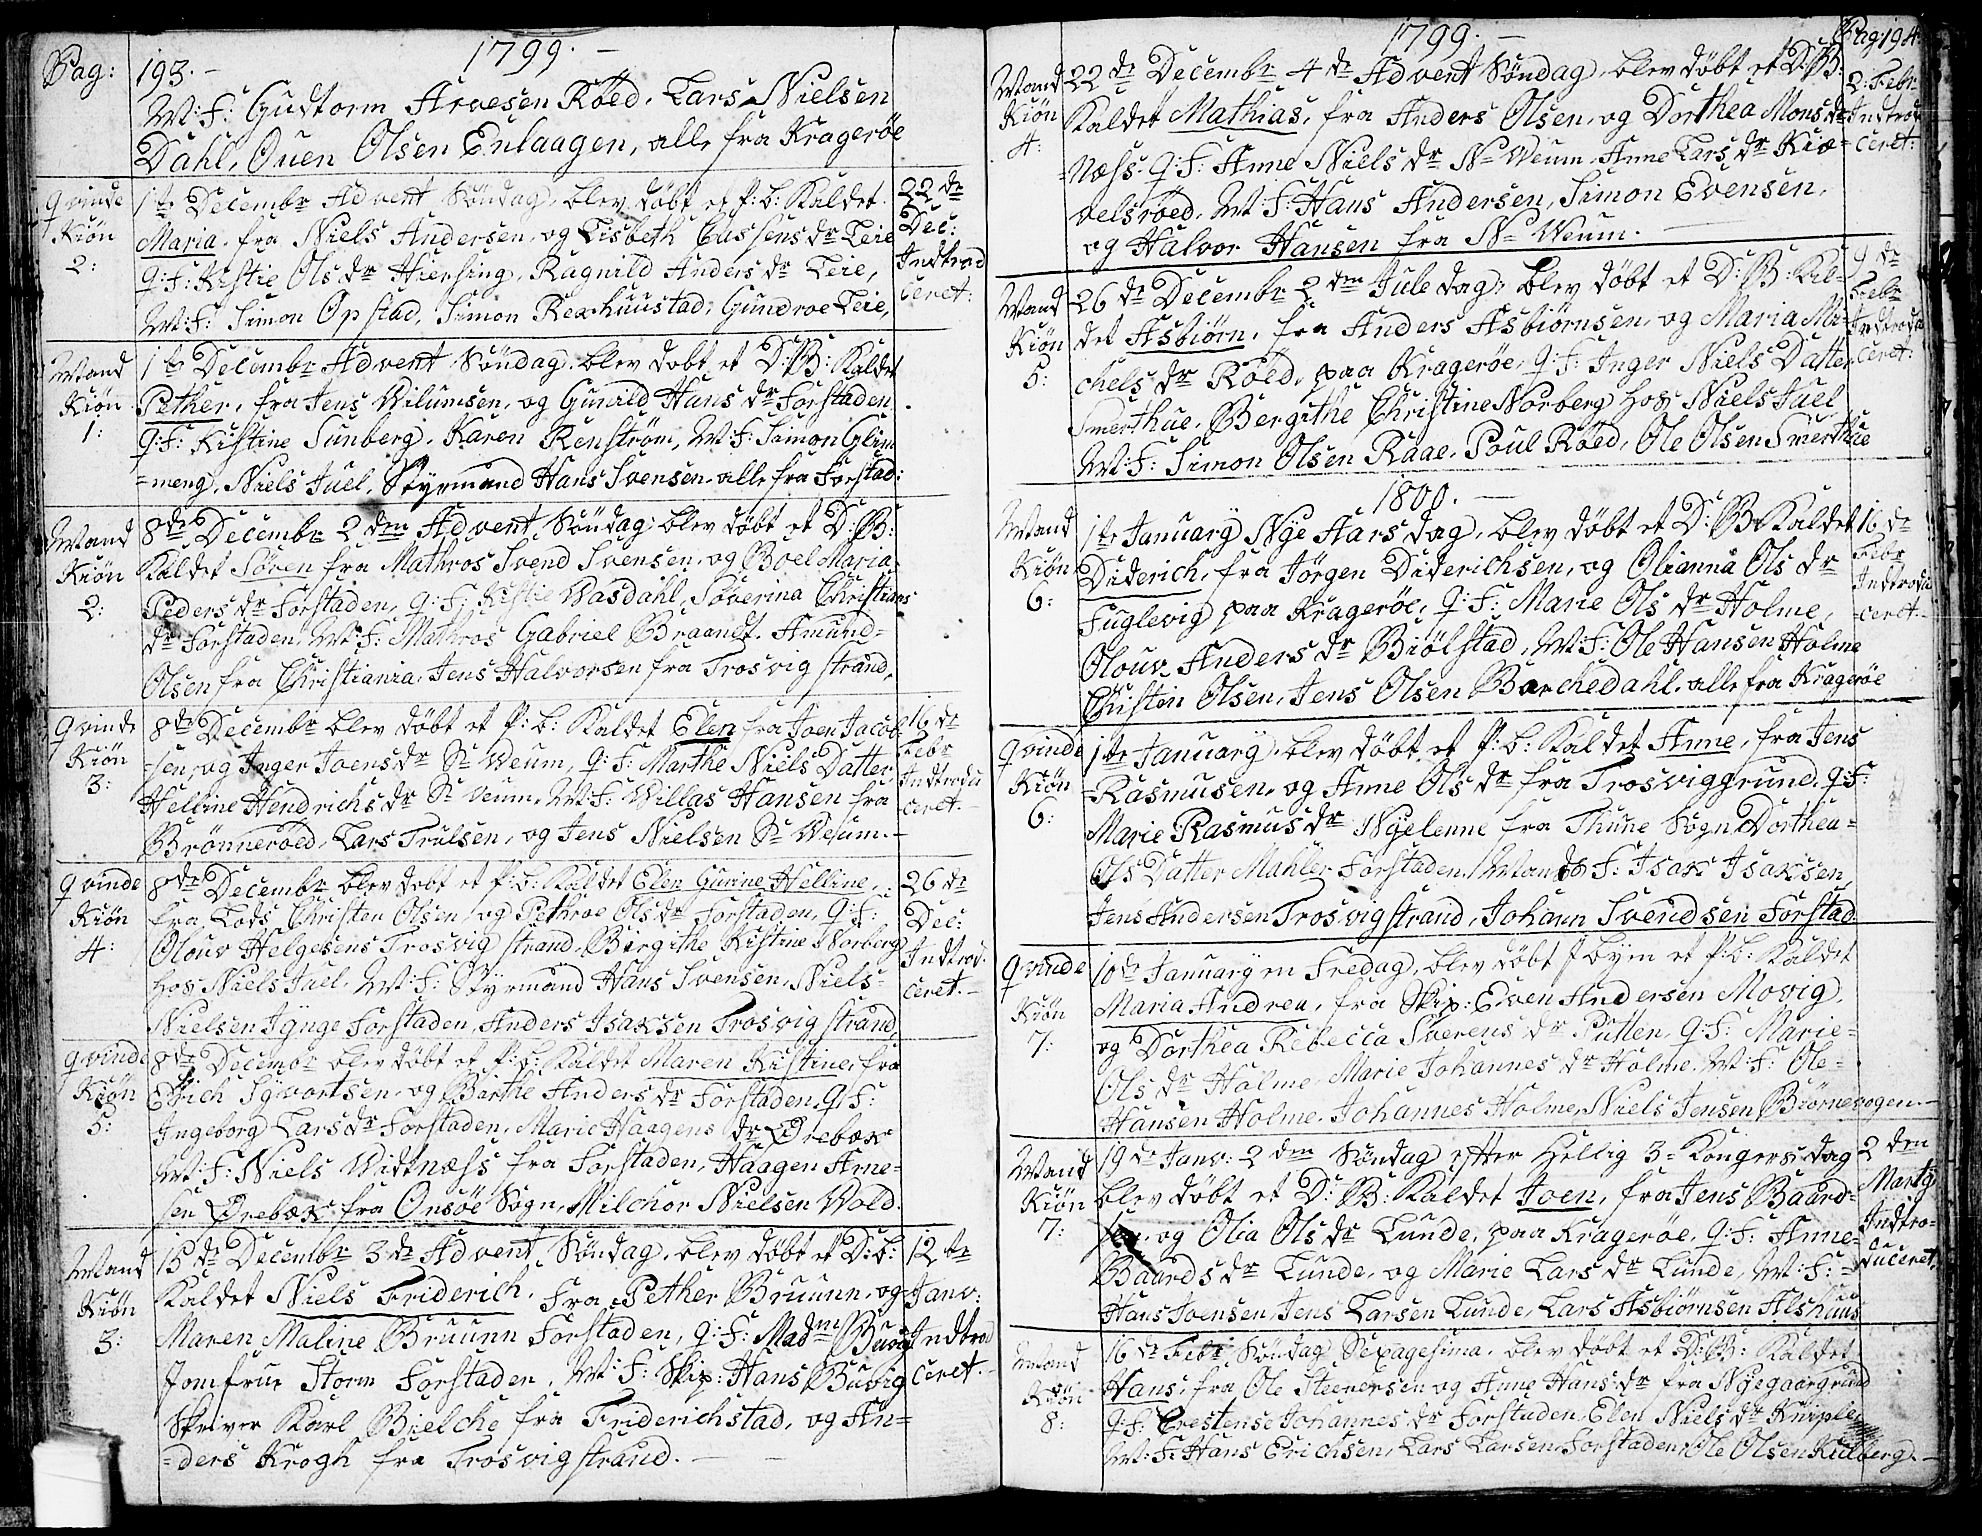 Pag: 193. 1799.
M: F: Gudtorm Arvesen Röed, Lars Nielsen
Dahl, Ouen Olsen Enlaagen, alle fra Kragerøe
qvinde Kiön 2:
1te Decembr Advent Söndag, blev döbt et P: b: Kaldet
Maria, fra Niels Andersen, og Lisbeth Cussens dr Leie
Q: F: Kistie Ols dr Hiersing, Ragnild Anders dr Leie,
M: F: Simon Opstad, Simon Rexhuustad, Gundroe Leie,
22de Dec: Indtrod ceret:
Mand Kiön 1:
1te Decembr Advent Söndag, blev dobt et D: B: Kaldet
Pether, fra Jens Wilumsen, og Gunild Hans dr Forstaden
Q: F: Kistine Sunberg, Karen Renström, M: F: Simon Glim
=meng, Niels Juel, Styrmand Hans Svensen, alle fra Forstad:
Mand Kiön 2:
8de Decembr 2den Advent Söndag, blev döbt et D: B:
Kaldet Sören fra Mathros Svend Svensen, og Boel Maria
Peders dr Forstaden, Q: F: Kistie Vasdahl, Söverina Christians
dr Forstaden, M: F: Mathros Gabriel Braandt, Amund=
Olsen fra Christiania, Jens Halvorsen fra Trosvig strand,
qvinde Kiön 3:
8de Decembr blev döbt et P: b: Kaldet Elen fra Joen Jacob
=sen, og Inger Joens dr Sr Weum, Q: F: Marthe Niels Datter,
Helline Hendrichs dr Sr Veum, M: F: Willas Hansen fra
Brönneröed, Lars Trulsen, og Jens Nielsen Sr Weum.
16de Febr Indtrodu ceret.
qvinde Kiön 4:
8de Decembr blev dobt et P: b: Kaldet Elen Gurine Helline,
fra Lods Christen Olsen, og Pethroe Ols dr Forstaden, Q: F:
Olouv Helgesens Trosvig strand, Birgithe Kistine Norberg
hos Niels Juel, M: F: Styrmand Hans Svensen, Niels=
Nielsen Tynge Forstaden, Anders Isaksen Trosvig strand,
26de Dec: Indtrod: ceret.
qvinde Kiön 5:
8de Decembr blev döbt et P: b: Kaldet Maren Kistine, fra
Erich Sigvartsen, og Birthe Anders dr Forstaden, Q: F:
Ingeborg Lars dr Forstaden, Marie Haagens dr Ørebæk
M: F: Niels Widtnæss fra Forstaden, Haagen Arne=
sen Ørebæk fra Onsöe Sogn, Milchor Nielsen Wold.
Mand Kiön 3:
15de Decembr 3de Advent Söndag, blev döbt et D: b:
Kaldet Niels Friderich, fra Pether Bruunn, og
Maren Maline Bruunn Forstaden, Q: F: Madm Buvig
Jomfrue Storm Forstaden, M: F: Skip: Hans Buvig
Skriver Karl Bielche fra Friderichstad, og An=
=ders Krogh fra Trosvig strand.
12te Janv: Indtrod ceret.
1799. Pag: 194.
Mand Kiön 4:
22de Decembr 4de Advent Söndag, blev döbt et D: B:
Kaldet Mathias, fra Anders Olsen, og Dorthea Mons dr
Næss. Q: F: Anne Niels dr Nr Weum, Anne Lars dr Kiæ=
velsröed, M: F: Hans Andersen, Simon Evensen,
og Halvor Hansen fra Nr Weum.
2: Febr Indtrod ceret:
Mand Kiön 5:
26de Decembr 2den Juledag, blev döbt et D: B: Kal=
det Asbiörn, fra Anders Asbiörnsen, og Maria Mi=
chels dr Röed, paa Kragerøe, Q: F: Inger Niels Datter
Smerthue, Bergithe Christine Norberg hos Niels Juel
M: F: Simon Olsen Raae, Poul Röed, Ole Olsen Smerthue
9de Febr Indtrodu ceret:
1800.
Mand Kiön 6:
1te January Nye Aars dag, blev döbt et D: B: Kaldet
Diderich, fra Jörgen Diderichsen, og Olianna Ols dr
Fuglevig paa Kragerøe, Q: F: Marie Ols dr Holme,
Olouv Anders dr Biölstad, M: F: Ole Hansen Holme
Christen Olsen, Jens Olsen Barchedahl, alle fra Kragerøe
16de Febr Indtrodu ceret.
qvinde Kiön 6:
1te January, blev döbt et P: b: Kaldet Anne, fra Jens
Rasmusen, og Anne Ols dr fra Trosviggrund. Q: F:
Marie Rasmus dr Nyelenne fra Thune Sogn, Dorthea=
Ols Datter Mahler Forstaden, Mands F: Isak Isaksen,
Jens Andersen Trosvig strand, Johann Svendsen Forstad
qvinde Kiön 7:
10de January en Fredag, blev döbt i byen et P: b: Kaldet
Maria Andrea, fra Skip: Even Andersen Movig,
og Dorthea Rebecca Sverens dr Putten, Q: F: Marie=
Ols dr Holme, Marie Johannes dr Holme, M: F: Ole=
Hansen Holme, Johannes Holme, Niels Jensen Biörnevogen.
Mand Kiön 7:
19de Janv: 2den Söndag efter Hellig 3= Kongers dag
blev döbt et D: B: Kaldet Joen, fra Jens Baard=
sen, og Olia Ols dr Lunde, paa Kragerøe. Q: F: Anne=
Baards dr Lunde, og Marie Lars dr Lunde, M: F:
Hans Joensen, Jens Larsen Lunde, Lars Asbiörnsen Alshuus
2den Martz Indtro= duceret,
Mand Kiön 8:
16de Febr Söndag Sexagesima, blev dobt et D: B: Kaldet
Hans, fra Ole Steenersen og Anne Hans dr fra Nyegaargrund
Q: F: Crestense Johannes dr Forstaden, Elen Niels dr Kniple
M: F: Hans Erichsen, Lars Larsen Forstaden, Ole Olsen Kulberg.